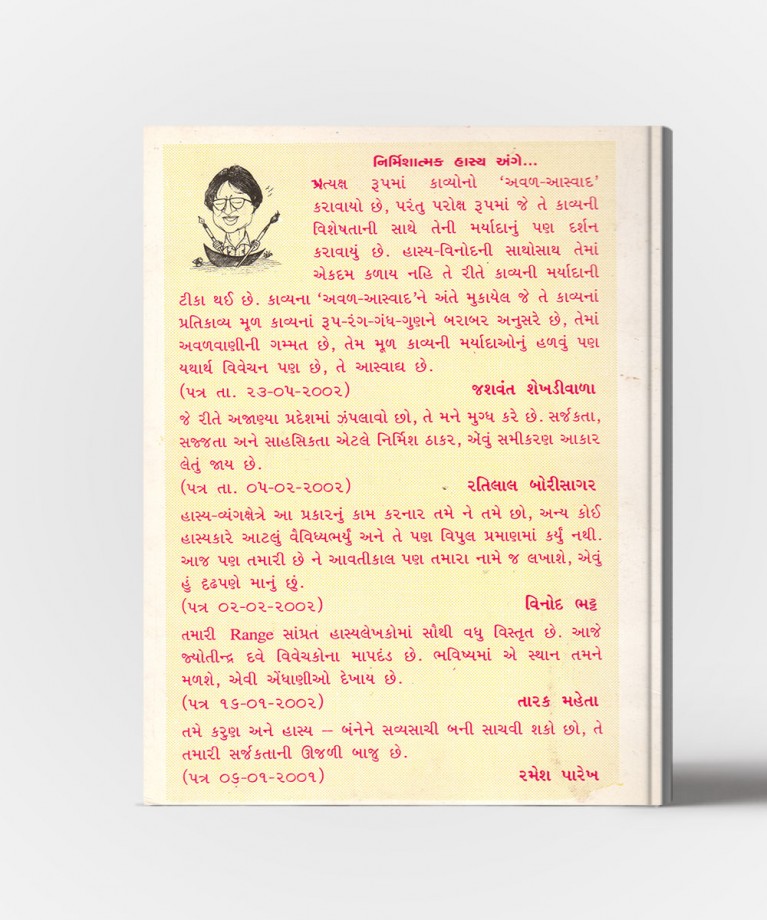 નિર્મિશાત્મક હાસ્ય અંગે...
પ્રત્યક્ષ રૂપમાં કાવ્યોનો ‘અવળ-આસ્વાદ’
કરાવાયો છે, પરંતુ પરોક્ષ રૂપમાં જે તે કાવ્યની
વિશેષતાની સાથે તેની મર્યાદાનું પણ દર્શન
કરાવાયું છે. હાસ્ય-વિનોદની સાથોસાથ તેમાં
એકદમ કળાય નહિ તે રીતે કાવ્યની મર્યાદાની
ટીકા થઈ છે. કાવ્યના ‘અવળ-આસ્વાદ’ને અંતે મુકાયેલ જે તે કાવ્યનાં
પ્રતિકાવ્ય મૂળ કાવ્યનાં રૂપ-રંગ-ગંધ-ગુણને બરાબર અનુસરે છે, તેમાં
અવળવાણીની ગમ્મત છે, તેમ મૂળ કાવ્યની મર્યાદાઓનું હળવું પણ
યથાર્થ વિવેચન પણ છે, તે આસ્વાદ્ય છે.
(પત્ર તા. ૨૩-૦૫-૨૦૦૨) જશવંત શેખડીવાળા
જે રીતે અજાણ્યા પ્રદેશમાં ઝંપલાવો છો, તે મને મુગ્ધ કરે છે. સર્જકતા,
સજ્જતા અને સાહસિકતા એટલે નિર્મિશ ઠાકર, એવું સમીકરણ આકાર
લેતું જાય છે.
(પત્ર તા. ૦૫-૦૨-૨૦૦૨) રતિલાલ બોરીસાગર
હાસ્ય-વ્યંગક્ષેત્રે આ પ્રકારનું કામ કરનાર તમે ને તમે છો, અન્ય કોઈ
હાસ્યકારે આટલું વૈવિધ્યભર્યું અને તે પણ વિપુલ પ્રમાણમાં કર્યું નથી.
આજ પણ તમારી છે ને આવતીકાલ પણ તમારા નામે જ લખાશે, એવું
હું દૃઢપણે માનું છું.
(પત્ર ૦૨-૦૨-૨૦૦૨) વિનોદ ભટ્ટ
તમારી Range સાંપ્રત હાસ્યલેખકોમાં સૌથી વધુ વિસ્તૃત છે. આજે
જ્યોતીન્દ્ર દવે વિવેચકોના માપદંડ છે. ભવિષ્યમાં એ સ્થાન તમને
મળશે, એવી એંધાણીઓ દેખાય છે.
(પત્ર ૧૬-૦૧-૨૦૦૨) તારક મહેતા
તમે કરુણ અને હાસ્ય – બંનેને સવ્યસાચી બની સાચવી શકો છો, તે
તમારી સર્જકતાની ઊજળી બાજુ છે.
(પત્ર ૦૬-૦૧-૨૦૦૧) રમેશ પારેખ